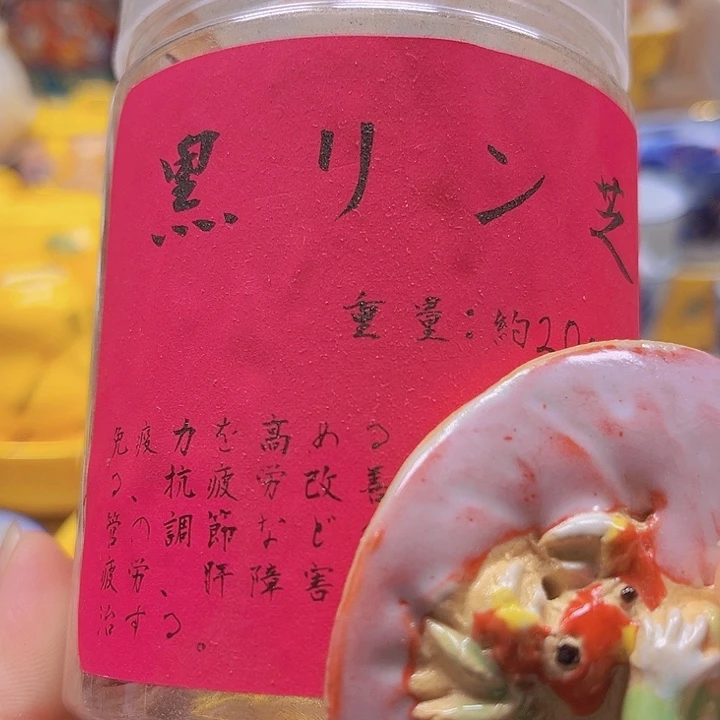 黒リン芝
重量:約20
免疫力を高める
る、抗疲労改善
管の調節など
疲労、肝障害
治する。